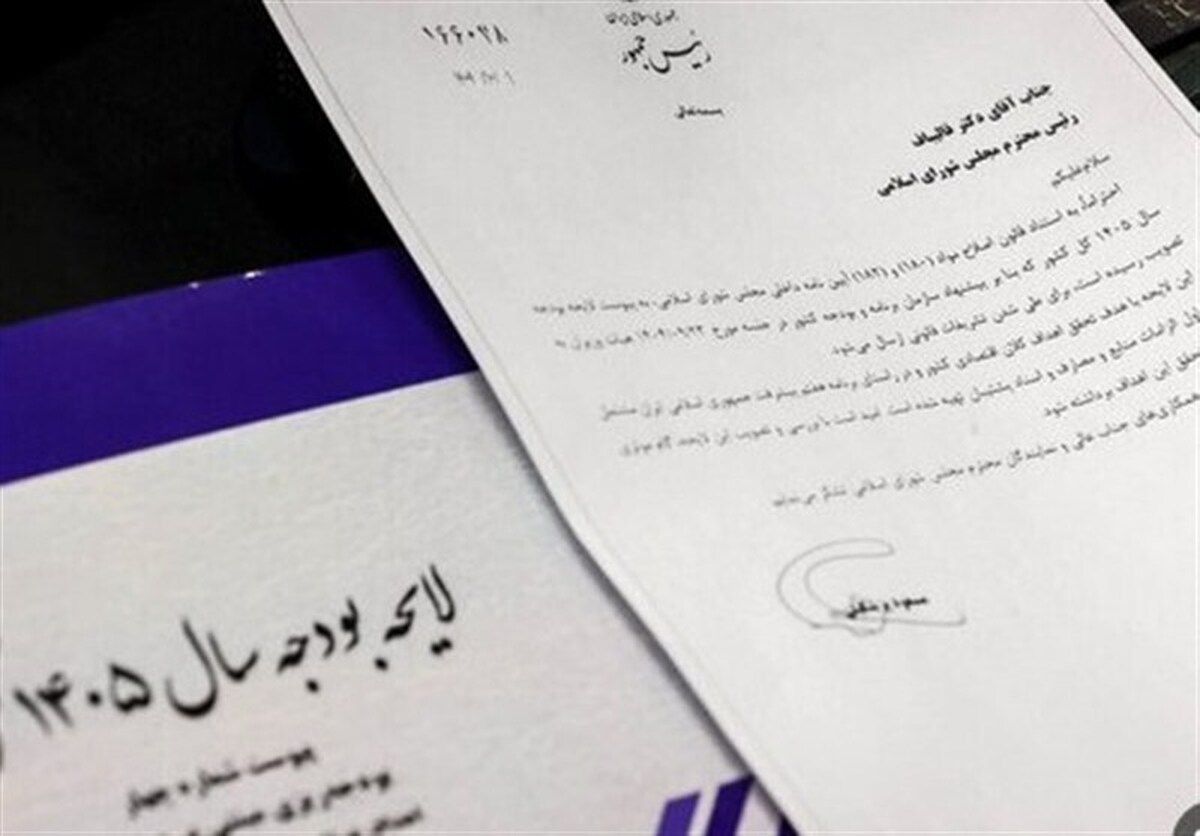 ۱۶۶۰۲۸
جمهوری اسلامی ایران
رئیس جمهور
بسمه‌تعالی
جناب آقای دکتر قالیباف
رئیس محترم مجلس شورای اسلامی
سلام‌علیکم
احتراماً، به استناد قانون اصلاح مواد (۱۸۰) و (۱۸۲) آیین نامه داخلی مجلس شورای اسلامی، به پیوست لایحه بودجه
سال ۱۴۰۵ کل کشور که بنا بر پیشنهاد سازمان برنامه و بودجه کشور در جلسه مورخ هیأت وزیران به
تصویب رسیده است، برای طی شدن تشریفات قانونی ارسال می‌شود.
این لایحه با هدف تحقق اهداف کلان اقتصادی کشور و در راستای برنامه هفتم پیشرفت جمهوری اسلامی ایران مشتمل
الزامات منابع و مصارف و اسناد پشتیبان تهیه شده است. امید است با بررسی و تصویب این لایحه، گام موثری
تحقق این اهداف برداشته شود.
همکاری‌های جناب عالی و نمایندگان محترم مجلس شورای اسلامی تشکر می‌نماید.
مسعود پزشکیان
لایحه بودجه سال ۱۴۰۵
پیوست شماره چهار